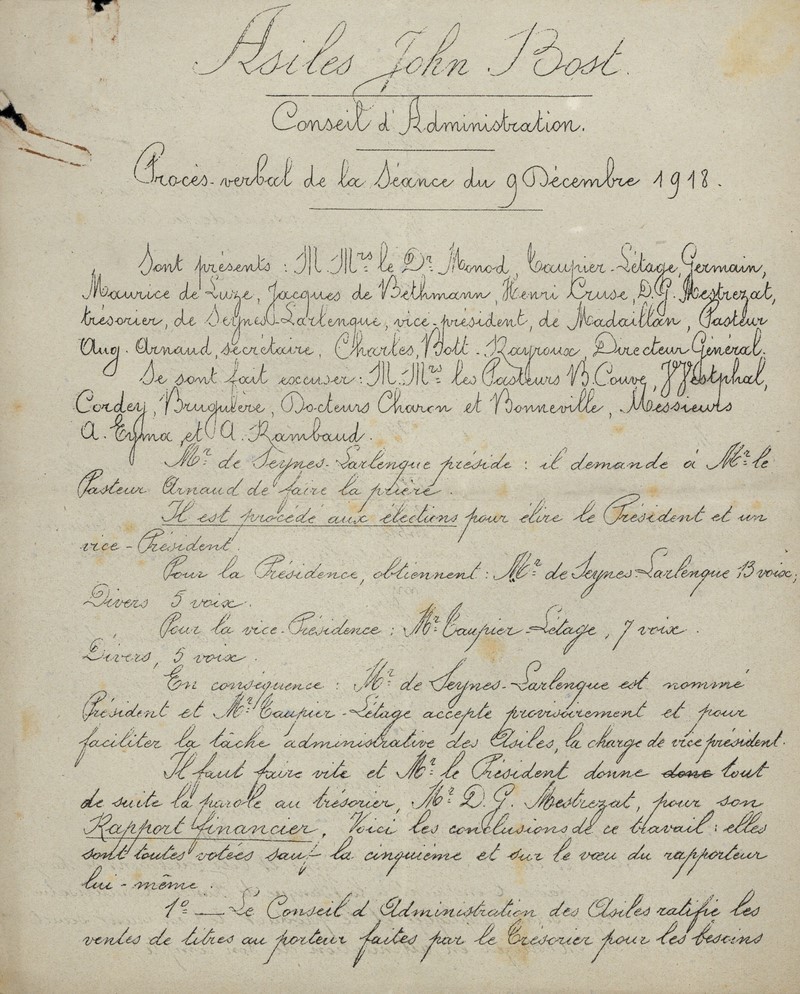 Asiles John Bost.
Conseil d'Administration.
Procès-verbal de la Séance du 9 Décembre 1918.
Sont présents : M.Mrs le Dr Monod, Taupier-Létage, Germain,
Maurice de Luze, Jacques de Bethmann, Henri Cruse, D.G. Mestrezat,
trésorier, de Seynes-Larlenque, vice-président, de Madaillan, Pasteur
Aug. Arnaud, secrétaire, Charles, Bolt-Rayroux, Directeur Général.
Se sont fait excuser : M.Mrs les Pasteurs B. Couve, Westphal,
Cordey, Bruguière, Docteurs Charon et Bonneville, Messieurs
A. Eyma et A. Rambaud.
Mr de Seynes-Larlenque préside : il demande à Mr le
Pasteur Arnaud de faire la prière.
Il est procédé aux élections pour élire le Président et un
vice-Président.
Pour la Présidence, obtiennent : Mr de Seynes-Larlenque 13 voix;
Divers 5 voix.
Pour la vice-Présidence : Mr Taupier-Létage, 7 voix.
Divers, 5 voix.
En conséquence : Mr de Seynes-Larlenque est nommé
Président et Mr Taupier-Létage accepte provisoirement et pour
faciliter la tâche administrative des Asiles, la charge de vice président.
Il faut faire vite et Mr le Président donne donc tout
de suite la parole au trésorier, Mr D. G. Mestrezat, pour son
Rapport financier. Voici les conclusions de ce travail : elles
sont toutes votées sauf la cinquième et sur le vœu du rapporteur
lui-même.
1º — Le Conseil d'Administration des Asiles ratifie les
ventes de titres au porteur faites par le Trésorier pour les besoins